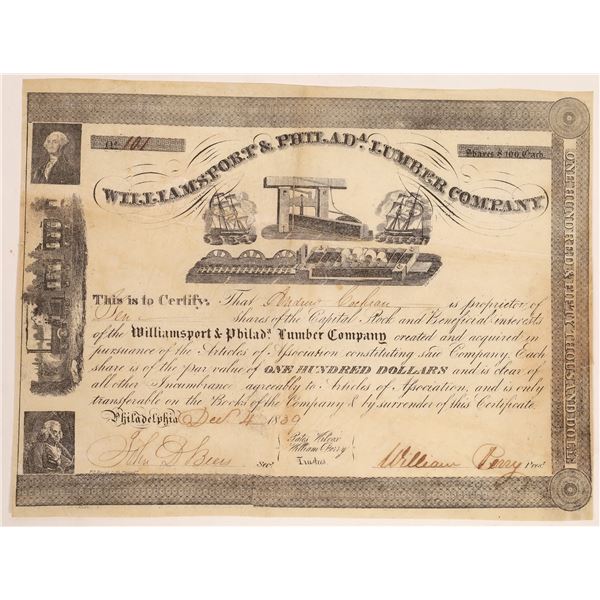 No. 101
Shares $100 Each
WILLIAMSPORT & PHILADA. LUMBER COMPANY.
This is to Certify, That Andrew Cochran is proprietor of
Ten shares of the Capital Stock and Beneficial interests
of the Williamsport & Philada. Lumber Company created and acquired in
pursuance of the Articles of Association constituting said Company. Each
share is of the par value of ONE HUNDRED DOLLARS and is clear of
all other Incumbrance agreebly to Articles of Association, and is only
transferable on the Books of the Company & by surrender of this Certificate.
Philadelphia Decr 4 1839
John D. Beers Secy. Bates Wilcox William Perry Trustees William Perry Prest.
ONE HUNDRED & FIFTY THOUSAND DOLLARS